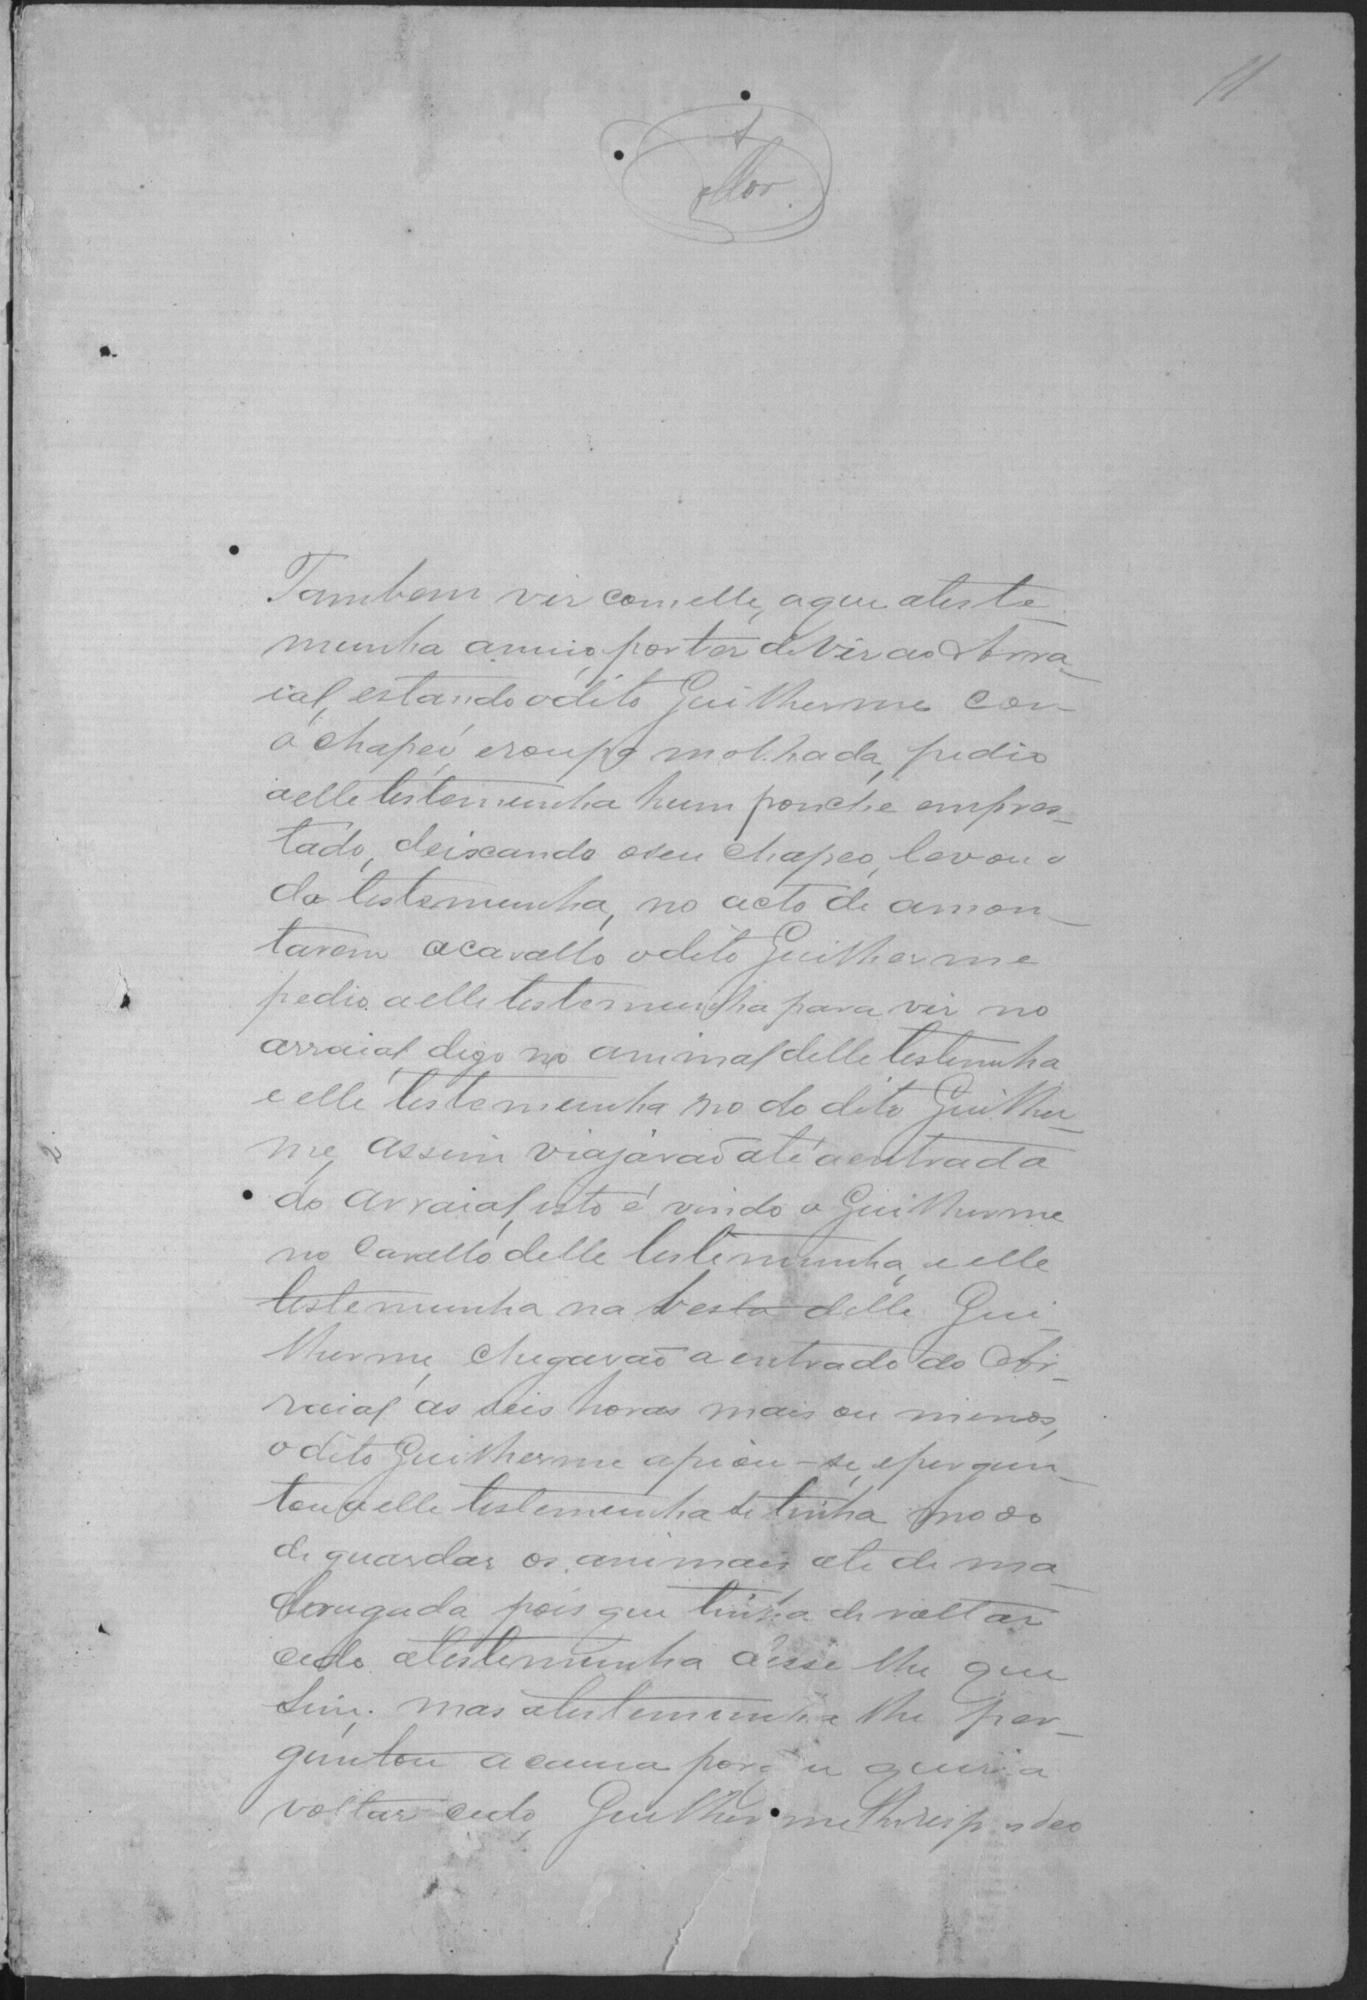 11
Tambem vir com elle, a que a teste
munha anuio por ter de vir ao Arra_
ial, estando o dito Guilherme com
o chapeo, e roupa molhada, pedio
a elle testemunha hum ponche empres_
tado, deixando o seu chapeo, levou o
da testemunha, no acto de amon_
tarem a cavallo o dito Guilherme
pedio a elle testemunha para vir no
arraial, digo no animal delle testemunha
e elle testemunha no do dito Guilher_
me, assim viajárão até a entrada
do arraial, isto é vindo o Guilherme
no Cavallo delle testemunha, e elle
testemunha na besta delle Gui_
lherme, chegarão a entrada do Ar_
raial ás seis horas mais ou menos,
o dito Guilherme apiou-se, e pergun_
tou a elle testemunha se tinha modo
de guardar os animais até de ma_
drugada pois que tinha de voltar
cedo a testemunha disse lhe que
sim; mas a testemunha lhe per_
guntou a causa porque queria
voltar cedo, Guilherme lhe respondeo